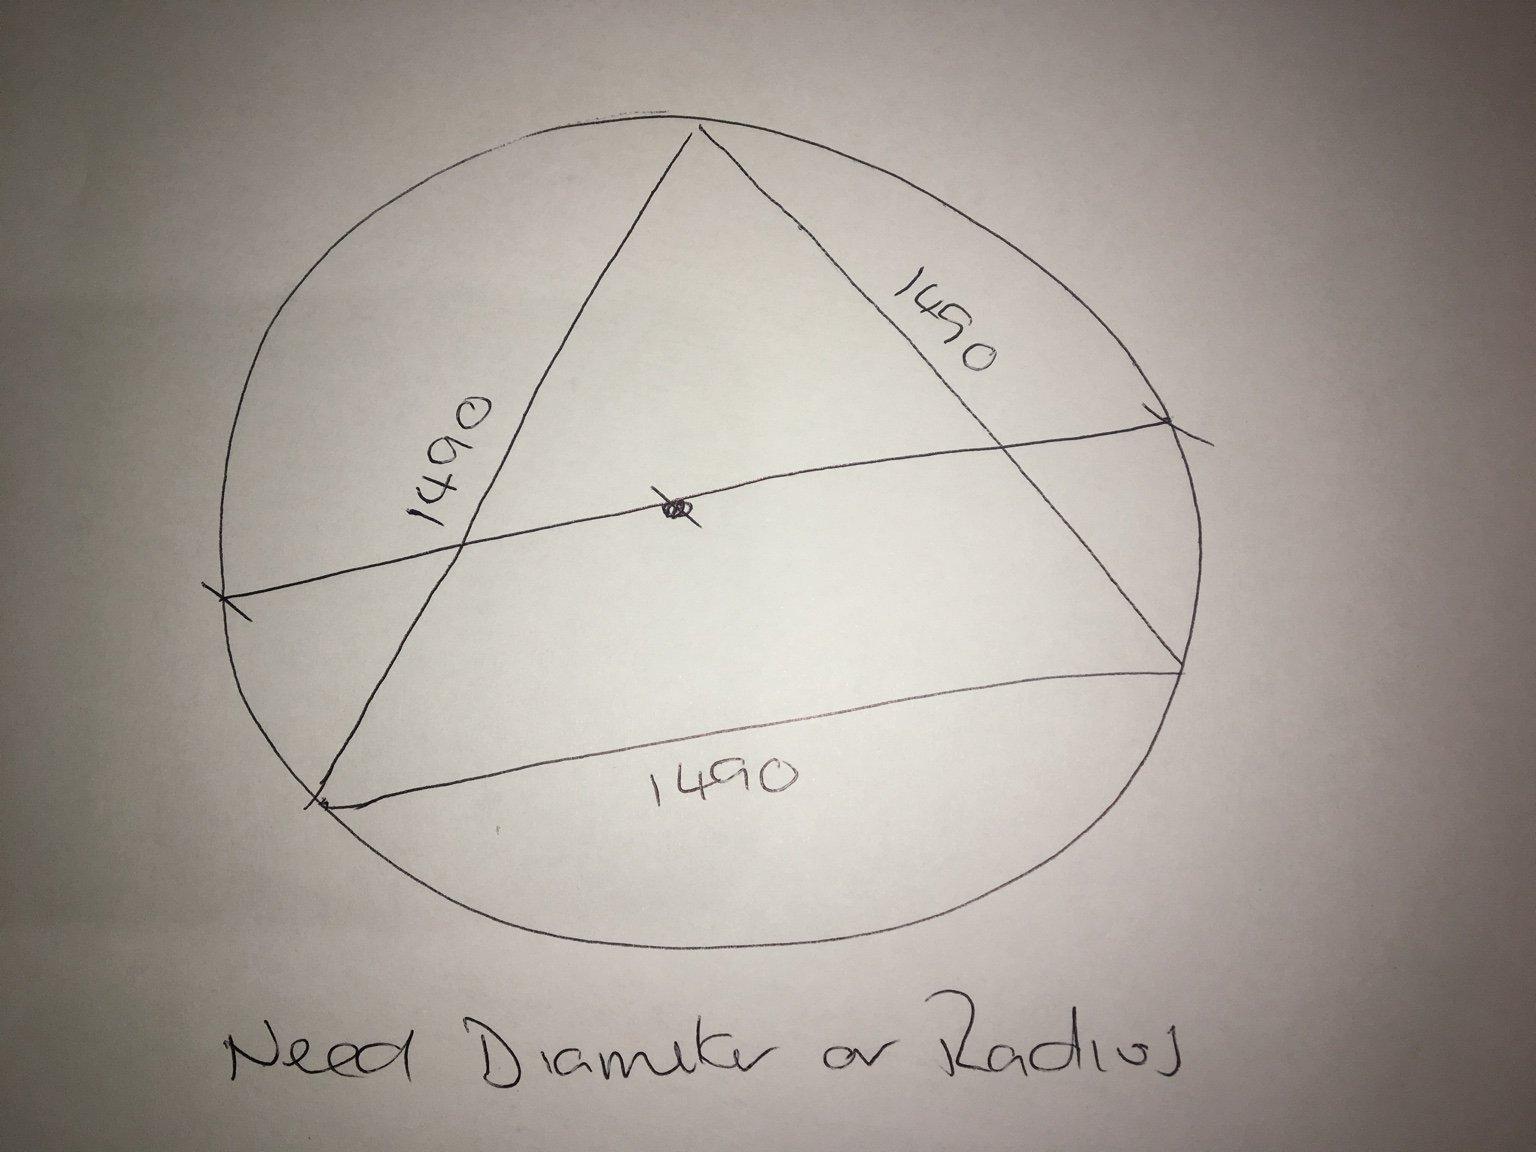 1490
1490
1490
Need Diameter or Radius